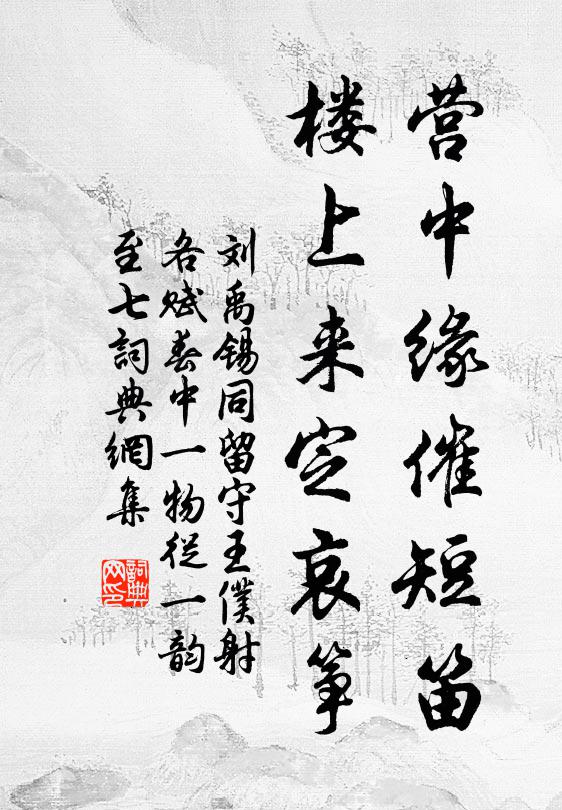 营中缘催短笛
楼上来定哀筝
刘禹锡同留守王仆射
各赋春中一物从一韵
至七词典网集
词典网印